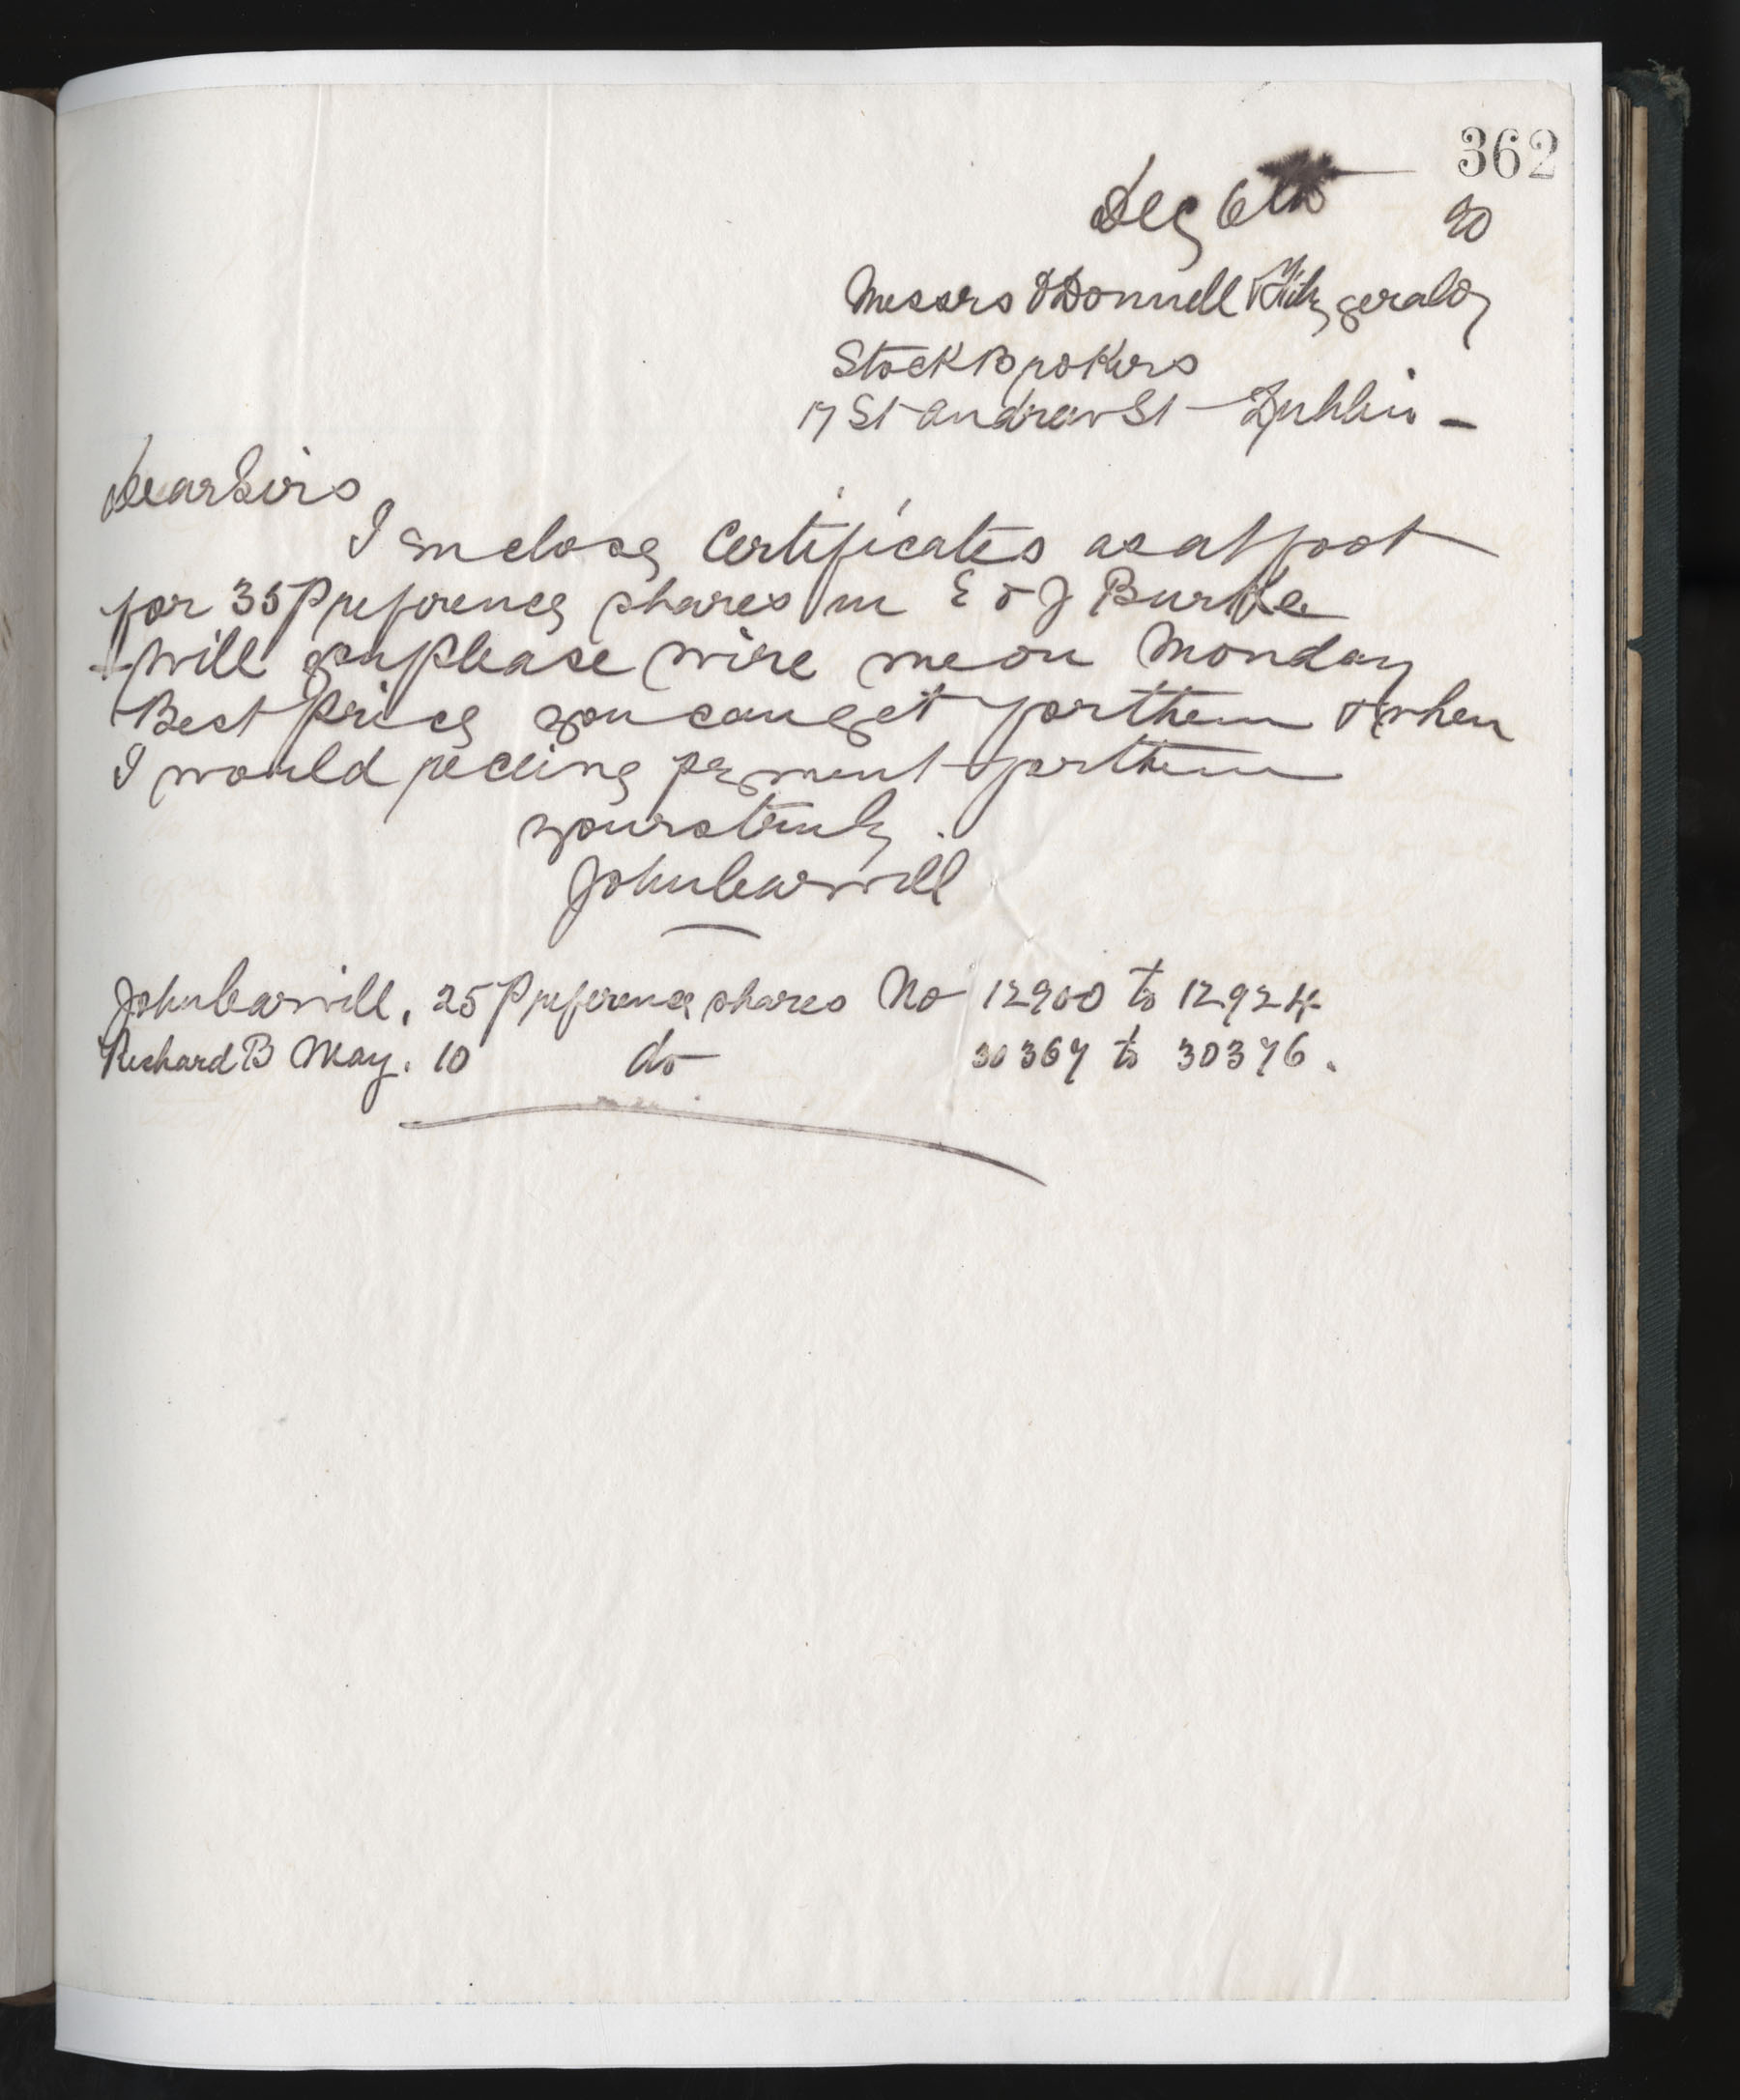 362
Dec 6th 90
Messrs O'Donnell & Fitzgerald
Stock Brokers
17 St Andrew St Dublin -
Dear Sirs
I enclose Certificates as at foot
for 35 Preference shares in E & J Burke
will you please wire me on Monday
Best Price you can get for them & when
I would receive payment for them
yours truly
John Carvill
John Carvill, 25 Preference shares No 12900 to 12924
Richard B May. 10 do 30367 to 30376.